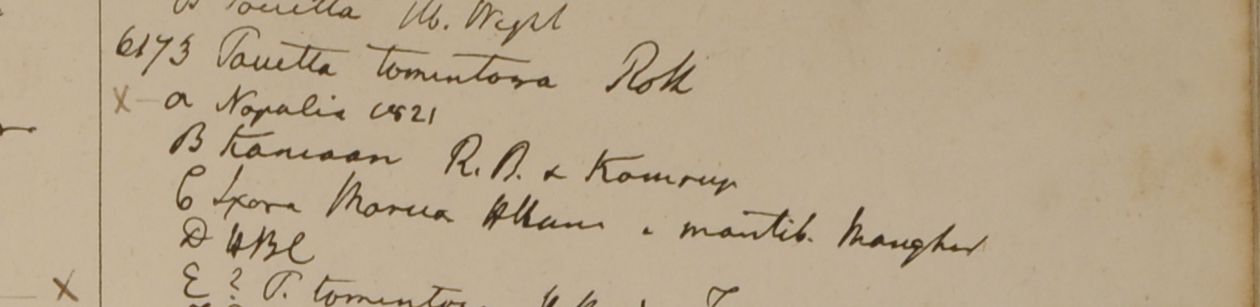 B Pavetta Hb. Wight
6173 Pavetta tomentosa Roth
x a Napalia 1821
B R. B. & Kamrup
C Ixora e montib. Monghir
D HBC
x E ? P. tomentosa